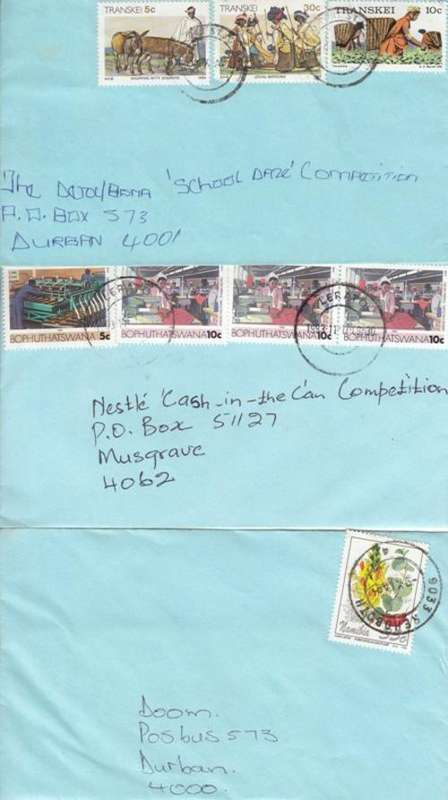 TRANSKEI 5c
TRANSKEI 30c
TRANSKEI 10c
The 'School Daze' Competition
P.O. Box 573
Durban 4001
BOPHUTHATSWANA 5c
BOPHUTHATSWANA 10c
BOPHUTHATSWANA 10c
BOPHUTHATSWANA 10c
Nestlé 'Cash-in-the-Can Competition
P.O. Box 51127
Musgrave
4062
9033
Namibia
Doom.
Posbus 573
Durban.
4000.